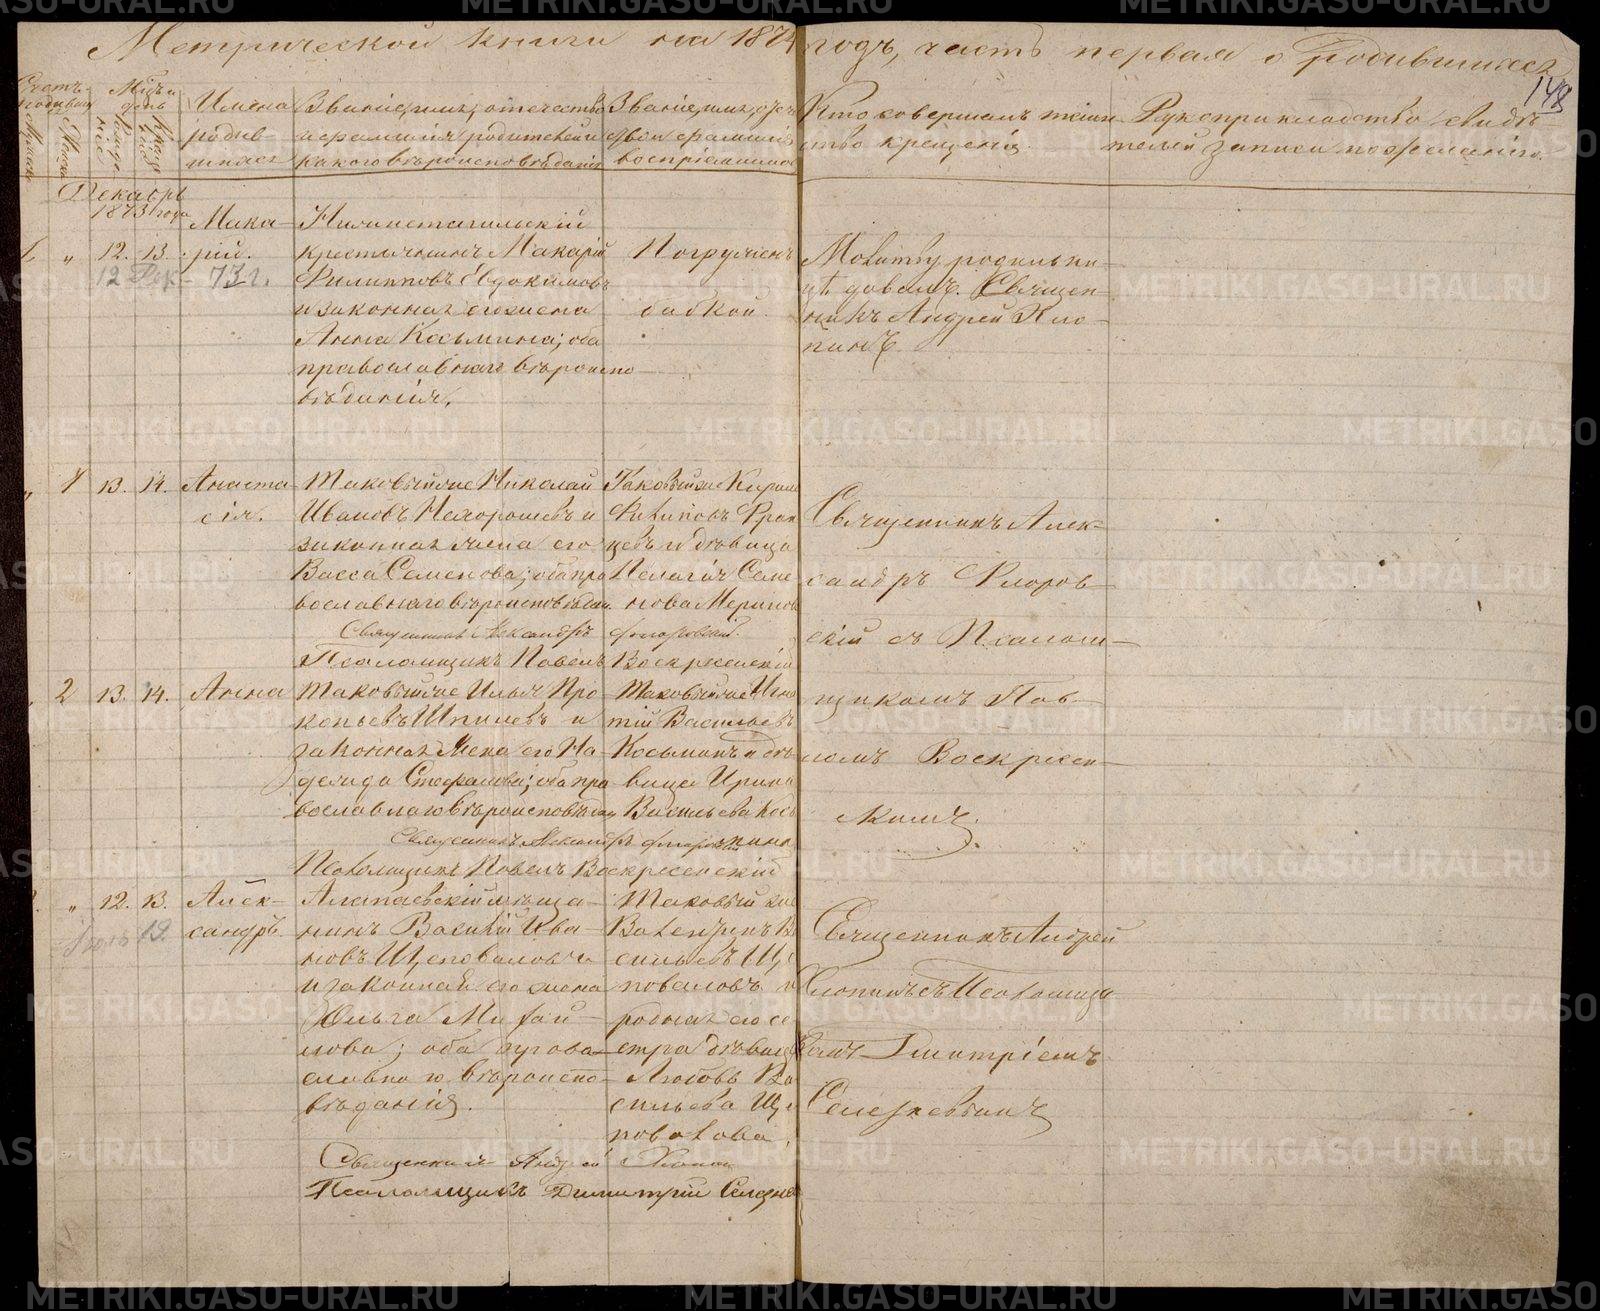 Метрической книги на 1874 годъ, часть первая о Родившихся
148
Счетъ родивш. Мѣсяцъ и день Имена родившихся
Званіе, имя, отечество и фамилія родителей и какого вѣроисповѣданія
Званіе, имя, отеч. и фамилія воспріемниковъ
Кто совершалъ таинство крещенія
Рукоприкладство свидѣтелей записи по желанію.
Декабрь
1873 года
" 12. 13.
12 Дек. 73 г.
Мака-
рій.
Нижнетагильскій
крестьянинъ Макарій
Филипповъ Евдокимовъ
и законная его жена
Анна Косьмина; оба
православнаго вѣроиспо
вѣданія.
Погруженъ
бабкой.
Молитву родильни-
цѣ давалъ. Священ-
никъ Андрей Хло-
пинъ.
" 1 13. 14.
Анаста
сія.
Таковый же Николай
Ивановъ Нехорошевъ и
законная жена его
Васса Семенова; оба пра
вославнаго вѣроисповѣдан.
Таковый же Кирилл
Филиповъ
и дѣвица
Пелагія Семе
нова
Священникъ Александръ Флоровскій.
Псаломщикъ Павелъ Воскресенскій
Священникъ Алек-
сандръ Флоров-
скій съ Псалом-
щикомъ Пав-
ломъ Воскресен-
скимъ.
2 13. 14.
Анна
Таковый же Илья Про
копьевъ Шпилевъ и
законная жена его На-
дежда Стефанова; оба пра
вославнаго вѣроисповѣдан
Таковый же Игна
тій Васильевъ
Косьминъ и дѣ
вица Ирина
Васильева Кось
мина
Священникъ Александръ Флоровскій
Псаломщикъ Павелъ Воскресенскій
" 12. 13.
19.
Алек-
сандръ.
Алапаевскій мѣща-
нинъ Василій Ива-
новъ Щеповаловъ
и законная его жена
Ольга Михай-
лова; оба право-
славнаго вѣроиспо-
вѣданія.
Таковый же
Валентинъ Ва
сильевъ Ще
поваловъ и
родная его се
стра дѣвица
Любовь Ва
сильева Ще
повалова.
Священникъ Андрей
Хлопинъ съ Псаломщи
комъ Димитріемъ
Селезневымъ
Священникъ Андрей Хлопин
Псаломщикъ Димитрій Селезне